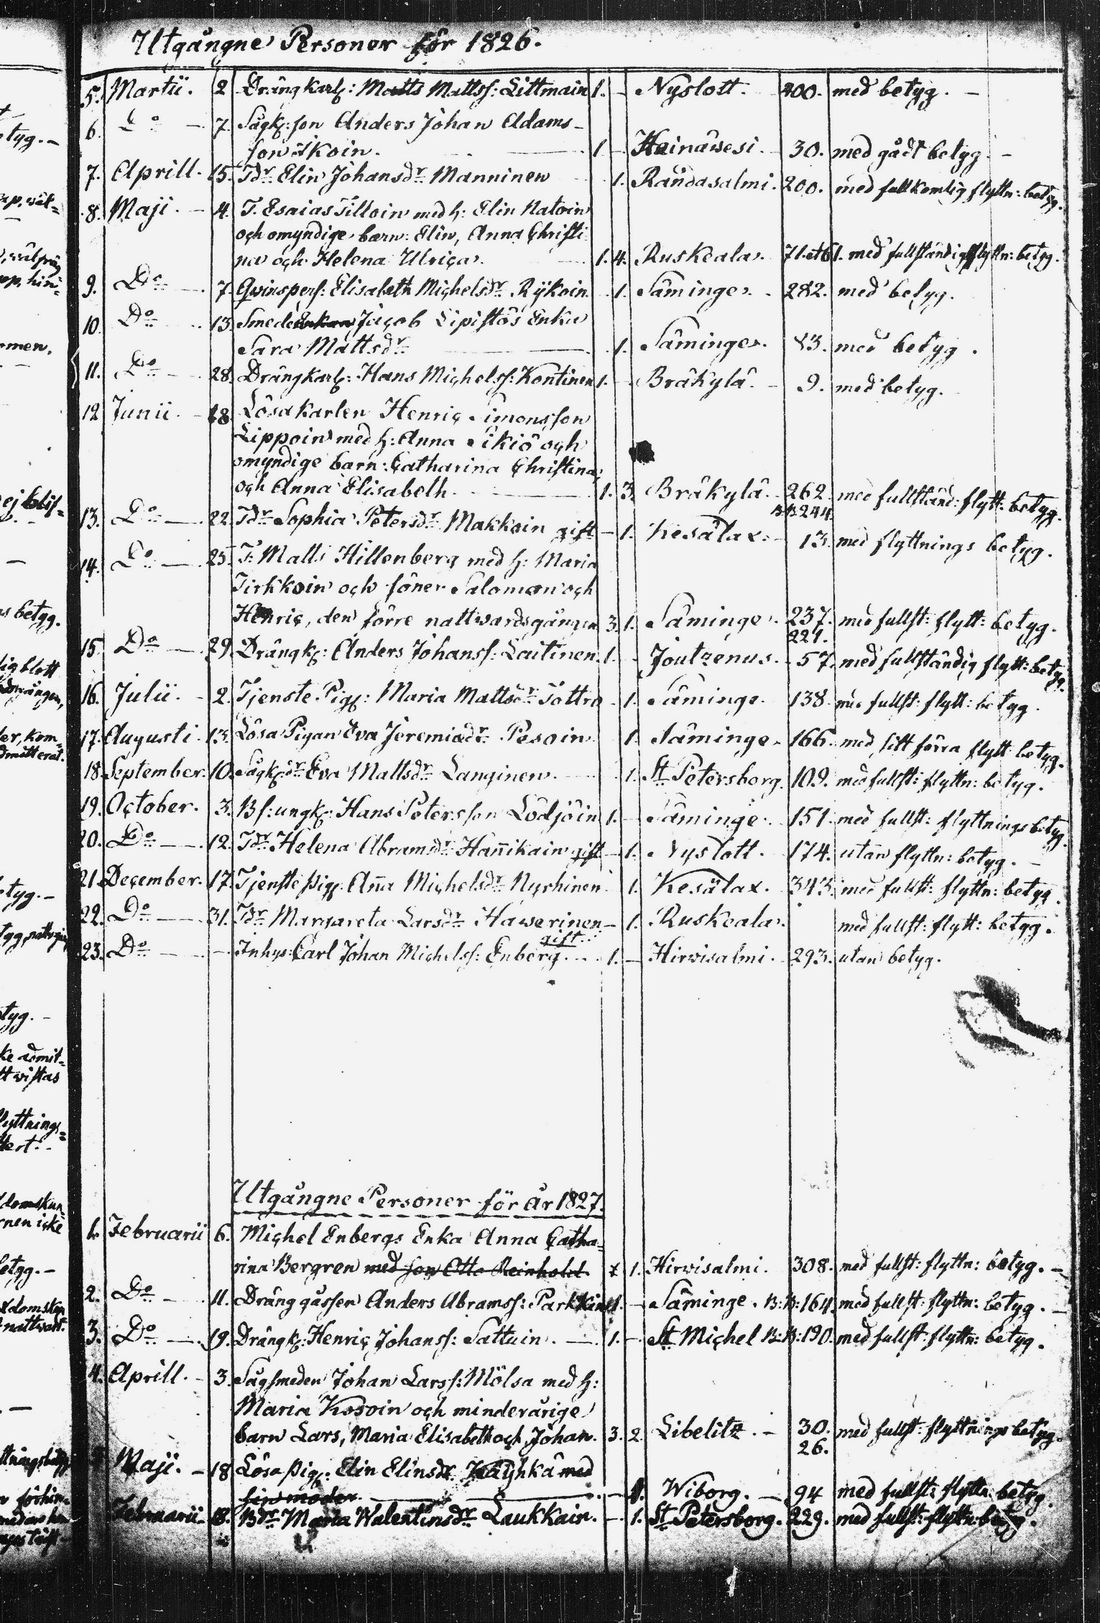 Utgångne Personer för 1826.
5. Martii. 2 Drängkarl: Matts Mattss: Littmain 1. - Nyslott. 200. med betyg. -
6. Do - 7. Sågk: son Anders Johan Adams-
son Ikoin. 1 - Hainäwesi. 30. med gådt betyg. -
7. Aprill. 15. Tdr Elin Johansdr Manninen 1. Randasalmi. 200. med fullkomlig flyttn: betyg.
8. Maji. - 4. T. Esaias Tilloin med h: Elin Natoin
och omyndige barn: Elin, Anna Christi
na och Helena Ulrica. 1. 4. Ruskeala. 71. et 61. med fullständig flyttn: betyg.
9. Do - 7. Qwinspers: Elisabeth Michelsdr Rÿkoin - 1. Säminge. - 282. med betyg.
10. Do 13. Smeds Jacob Lipistös Enka
Sara Mattsdr 1. Säminge. 83. med betyg.
11. Do 28. Drängkarl: Hans Michelss: Kontinen 1. - Bräkylä. - 9. med betyg.
12 Junii. - 18. Lösakarlen Henric Simonsson
Lippoin med h: Anna Ikiö och
omyndige barn: Catharina Christina,
och Anna Elisabeth. 1. 3. Bräkylä. 262. med fullständ: flytt: betyg.
13. Do - 22. Tdr Sophia Petersdr Makkoin gift - 1. Kesälax. 13. med flyttnings betyg.
14. Do - 25. T. Matts Hillenberg med h: Maria
Tirkkoin och söner Salomon och
Henric, den förre nattwardsgången 3. 1. Säminge. 237. med fullst: flytt: betyg.
221.
15. Do - 29. Drängk: Anders Johanss: Laitinen. 1. - Joutzenus. - 57. med fullständig flytt: betyg.
16. Julii. - 2. Tjenste Pig: Maria Mattsdr Tattro - 1. Säminge. 138. med fullst: flytt: betyg.
17. Augusti. 13. Lösa Pigan Eva Jeremiædr Pesoin 1. Säminge. - 166. med sitt förra flytt betyg.
18. September. 10. Sågksdr Eva Mattsdr Langinen. 1. St Petersborg. 109. med fullst: flyttn: betyg.
19. October. 3. Bs: ungk: Hans Petersson Lödjöin 1. - Säminge. 151. med fullst: flyttnings betyg.
20. Do 12. Tdr Helena Abramsdr Hañikain gift - 1. Nyslott. 174. utan flyttn: betyg. -
21. December. 17. Tjenste pig: Aña Michelsdr Nyyhinen 1. Kesälax. 343. med fullst: flyttn: betyg.
22. Do 31. Tdr Margareta Larsdr Hawerinen - 1. Ruskeala. med fullst: flytt: betyg.
23. Do - Inhys: Carl Johan Michelss: Enberg. gift 1. - Hirwisalmi. 293. utan betyg.
Utgångne Personer för år 1827.
1. Februarii 6. Michel Enbergs Enka Anna Catha-
rina Bergren med son Otto Reinhold 1. Hirwisalmi. 308. med fullst: flyttn: betyg. -
2. Do - 11. Dräng gåssen Anders Abramss: Parkkin 1. - Säminge. B:B: 164. med fullst: flyttn: betyg. -
3. Do - 19. Drängk: Henric Johanss: Sattuin 1. - St Michel B:B: 190. med fullst: flyttn: betyg.
4. Aprill. - 3. Sågsmeden Johan Larss: Mölsa med h:
Maria Kosoin och minderårige
barn Lars, Maria Elisabeth och Johan. 3. 2. Libelitz. - 30. med fullst: flyttnings betyg
26.
Maji. - 18 Lösa pig: Elin Elinsdr med
sin moder 1. Wiborg. - 94 med fullst: flyttn: betyg.
Februarii 18. Bdr Maria Walentinsdr Laukkain. - 1. St Petersborg. 229. med fullst: flyttn: betyg.